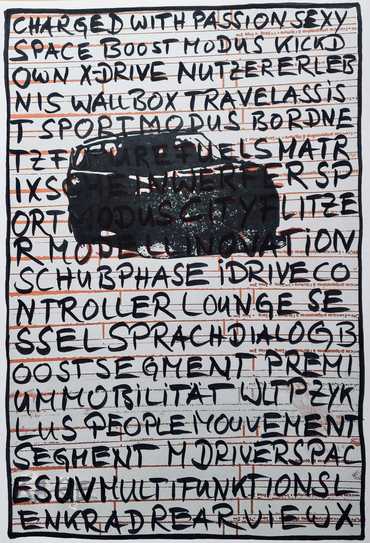 CHARGED WITH PASSION SEXY
SPACE BOOST MODUS KICKD
OWN X-DRIVE NUTZERERLEB
NIS WALLBOX TRAVELASSIS
T SPORTMODUS BORDNE
TZ FUTURE FUELS MATR
IXSCHEINWERFER SP
ORTMODUS CITYFLITZE
R MODELL INOVATION
SCHUBPHASE iDRIVE CO
NTROLLER LOUNGE SE
SSEL SPRACHDIALOG B
OOST SEGMENT PREMI
UMMOBILITÄT WLTPZYK
LUS PEOPLE MOUVEMENT
SEGMENT M DRIVERSPAC
E SUV MULTIFUNKTIONSL
ENKRAD REARVIEWX